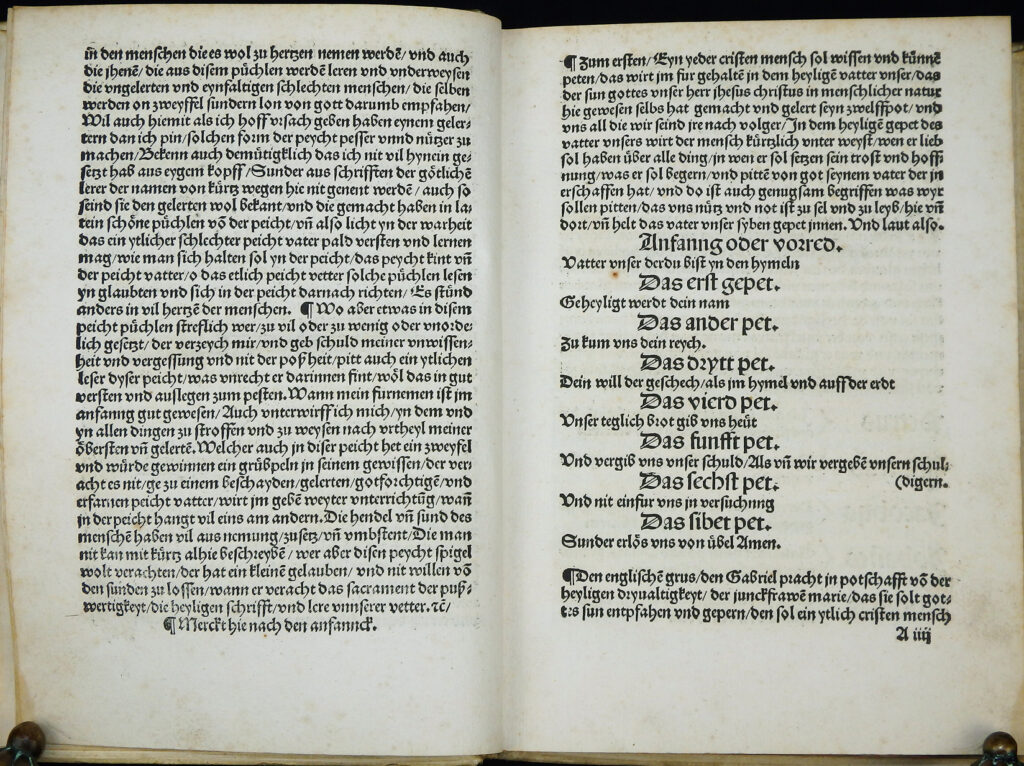 in̄ den menschen die es wol zu hertzen nemen werdē/ vnd auch
die jhenē/ die aus disem püchlen werdē leren vnd vnderweysen
die vngelerten vnd eynfaltigen schlechten menschen/ die selben
werden on zweyffel sundern lon von gott darumb empfahen/
Wil auch hiemit als ich hoff vrsach geben haben eynem geler⸗
tern dan ich pin/ solchen form der peycht pesser vnnd nützer zu
machen/ Bekenn auch demütigklich das ich nit vil hynein ge⸗
setzt hab aus eygem kopff/ Sunder aus schrifften der götlichē
lerer der namen von kürtz wegen hie nit genent werdē/ auch so
seind sie den gelerten wol bekant/ vnd die gemacht haben in la⸗
tein schöne püchlen vō der peicht/ vn̄ also licht yn der warheit
das ein ytlicher schlechter peicht vater pald versten vnd lernen
mag/ wie man sich halten sol yn der peicht/ das peycht kint vn̄
der peicht vatter/ o das etlich peicht vetter solche püchlen lesen
yn glaubten vnd sich in der peicht darnach richten/ Es stünd
anders in vil hertzē der menschen. ¶ Wo aber etwas in disem
peicht püchlen streflich wer/ zu vil oder zu wenig oder vnorde⸗
lich gesetzt/ der verzeych mir/ vnd geb schuld meiner vnwissen⸗
heit vnd vergessung vnd nit der poßheit/ pitt auch ein ytlichen
leser dyser peicht/ was vnrecht er darinnen fint/ wöl das in gut
versten vnd auslegen zum pesten. Wann mein furnemen ist jm
anfanng gut gewesen/ Auch vnterwirff ich mich/ yn dem vnd
yn allen dingen zu stroffen vnd zu weysen nach vrtheyl meiner
öbersten vn̄ gelertē. Welcher auch in diser peicht het ein zweyfel
vnd würde gewinnen ein grübpeln in seinem gewissen/ der ver
acht es nit/ ge zu einem beschayden/ gelerten/ gotforchtigē/ vnd
erfarnen peicht vatter/ wirt jm gebē weyter vnterrichtūg/ wan̄
in der peicht hangt vil eins am andern. Die hendel vn̄ sund des
menschē haben vil aus nemung/ zusetz/ vn̄ vmbstent/ Die man
nit kan mit kürtz alhie beschreybē/ wer aber disen peycht spigel
wolt verachten/ der hat ein kleinē gelauben/ vnd nit willen vō
den sunden zu lossen/ wann er veracht das sacrament der puß⸗
wertigkeyt/ die heyligen schrifft/ vnd lere vnnserer vetter. ꝛc̄/
¶ Merckt hie nach den anfannck.
¶ Zum ersten/ Eyn yeder cristen mensch sol wissen vnd künnē
peten/ das wirt jm fur gehaltē in dem heyligē vatter vnser/ das
der sun gottes vnser herr jhesus christus in menschlicher natur
hie gewesen selbs hat gemacht vnd gelert seyn zwelffpot/ vnd
vns all die wir seind jre nach volger/ In dem heyligē gepet des
vatter vnsers wirt der mensch kürtzlich vnter weyst/ wen er lieb
sol haben über alle ding/ jn wen er sol setzen sein trost vnd hoff
nung/ was er sol begern/ vnd pittē von got seynem vater der jn
erschaffen hat/ vnd do ist auch genugsam begriffen was wyr
sollen pitten/ das vns nütz vnd not ist zu sel vnd zu leyb/ hie vn̄
dort/ vn̄ helt das vater vnser syben gepet jnnen. Vnd laut also.
Anfanng oder vorred.
Vatter vnser der du bist yn den hymeln
Das erst gepet.
Geheyligt werdt dein nam
Das ander pet.
Zu kum vns dein reych.
Das drytt pet.
Dein will der geschech/ als jm hymel vnd auff der erdt
Das vierd pet.
Vnser teglich brot gib vns heüt
Das funfft pet.
Vnd vergib vns vnser schuld/ Als vn̄ wir vergebē vnsern schul⸗
Das sechst pet. (digern.
Vnd nit einfur vns jn versuchnng
Das sibet pet.
Sunder erlös vns von übel Amen.
¶ Den englischē grus/ den Gabriel pracht in potschafft vō der
heyligen dryualtigkeyt/ der junckfrawē marie/ das sie solt got⸗
tes sun entpfahen vnd gepern/ den sol ein ytlich cristen mensch
A iiij